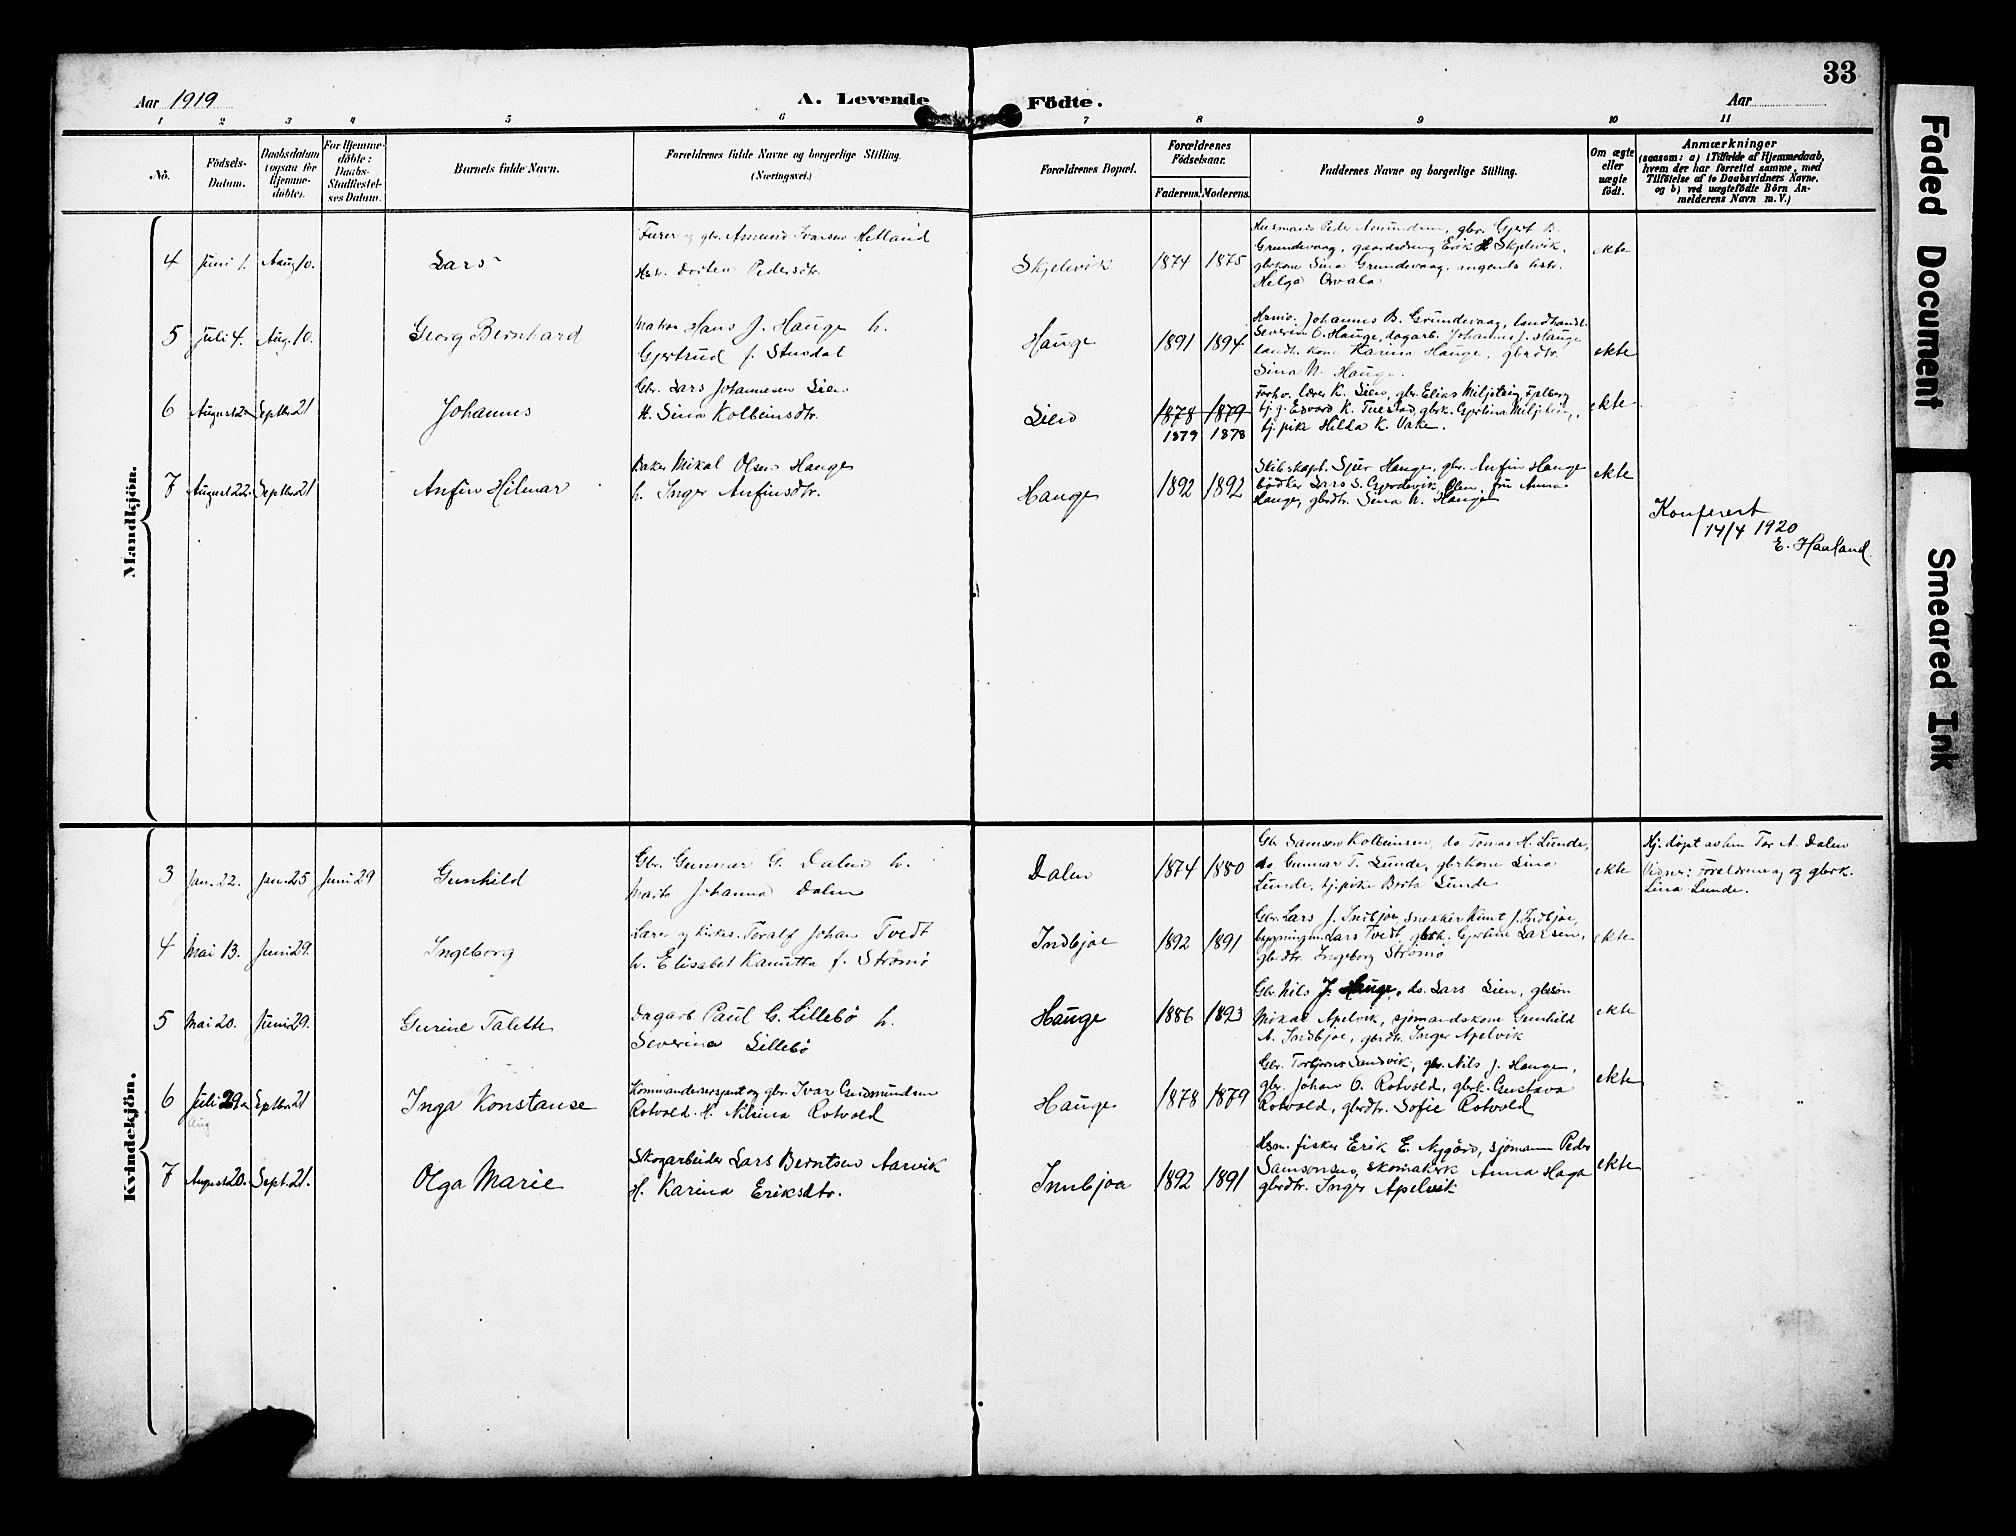 33
Aar 1919 A. Levende Födte. Aar
1 2 3 4 5 6 7 8 9 10 11
No. Födsels-Datum. Daabsdatum (ogsaa for Hjemmedöbte). For Hjemmedöbte: Daabs-Stadfestelses Datum. Barnets fulde Navn. Forældrenes fulde Navne og borgerlige Stilling. (Næringsvei.) Forældrenes Bopæl. Forældrenes Födselsaar. Faderens. Moderens. Faddernes Navne og borgerlige Stilling. Om ægte eller uægte født. Anmærkninger
(saasom: a) i Tilfælde af Hjemmedaab,
hvem der har forrettet samme, med
Tilföielse af to Daabsvidners Navne,
og b) ved uægtefödte Börn An-
melderens Navn m. V.)
Mandkjön.
4 Juni 1. Aug 10. Lars
og gbr. Amund Ivarsen Hetland
Dorten Pedersdtr.
Skjelevik 1874 1875
Husmann Peder Amundsen, gbr. Gjert B.
Grundevaag, gaardsdreng Erik H Skjelevik,
gbrkone Sina Grundevaag, agents hstr.
Helga
ekte
5 Juli 4. Aug. 10. Georg Bernhard
Matros Hans J. Hauge h.
Gjertrud f. Stuedal
Hauge 1891 1894
Johannes B. Grundevaag, landhandl.
Severin O. Hauge, dagarb. Johannes J. Hauge
landh. kone Karina Hauge, gbrdtr.
Sina N. Hauge.
ekte
6 August 2 Septbr 21 Johannes
Gbr. Lars Johannesen Lien
H. Sina Kolbeinsdtr.
Lien 1878 1879
1879 1878
Forhv. lærer K. Lien, gbr. Elias Miljeteig, Fjelberg
tj. g. Edvard K. gbrk. Gjertina Miljeteig,
tj. pike Hilda K. Vake.
ekte
7 August 22. Septbr 21 Anfin Hilmar
Baker Mikal Olsen Hauge
h. Inger Anfinsdtr.
Hauge 1892 1892
Skibskapt. Sjur Hauge, gbr. Anfin Hauge
bødker Lars S. Gjerdevik, Ølen, fru Anna
Hauge, gbrdtr. Sina N. Hauge
ekte
Konferert
14/4 1920
E. Hauland.
Kvindekjön.
3 Jan. 22. Jan. 25 Juni 29 Gunhild
Gbr. Gunnar G. Dalen h.
Marta Johanna Dalen
Dalen 1874 1880
Gbr Samson Kolbeinsen, do Tomas H. Lunde,
do. Gunnar T. Lunde, gbrkone Lina
Lunde, tj. pike Berta Lunde
ekte
Hj. døpt av hm Tor A. Dalen
Vidner: Forældrene og gbrk.
Lina Lunde.
4 Mai 13. Juni 29. Ingeborg
Lærer og kirkes. Toralf Johan Tvedt
h. Elisabet Kanutta f. Strømø
Indbjoe 1892 1891
Gbr. Lars J. Indbjoe, snekker Knut J. Indbjoe,
bygningsm. Lars Tvedt, gbrk. Gjertine Larsen,
gbrdtr. Ingeborg Strømø
ekte
5 Mai 20. Juni 29. Gurine Talette
Dagarb Paul G. Lillebø h.
Severina Lillebø
Hauge 1886 1893
Gbr. Nils J. Hauge, do. Lars Lien, gbrsøn
Mikal Apelvik, sjømandskone Gunhild
A. Indbjoe, gbrdtr. Inger Apelvik
ekte
6 Juli 29. Septbr. 21 Inga Konstanse
Aug
Kommandersersjant og gbr. Ivar Gudmundsen
Rotvold. H. Nilsina Rotvold
Hauge 1878 1879
Gbr. Torbjørn Sandvik, gbr. Nils J. Hauge,
gbr. Johan O. Rotvold, gbrk. Gustava
Rotvold, gbrdtr. Sofie Rotvold
ekte
7 August 20. Sept. 21. Olga Marie
Skogarbeider Lars Berntsen Aarvik
H. Karina Eriksdtr.
Innbjoa 1892 1891
Hsm. fisker Erik E. Nygård, sjømann Peder
Samsonsen, skomakerk Anna Haga
gbrdtr. Inger Apelvik
ekte
Faded Document
Smeared Ink